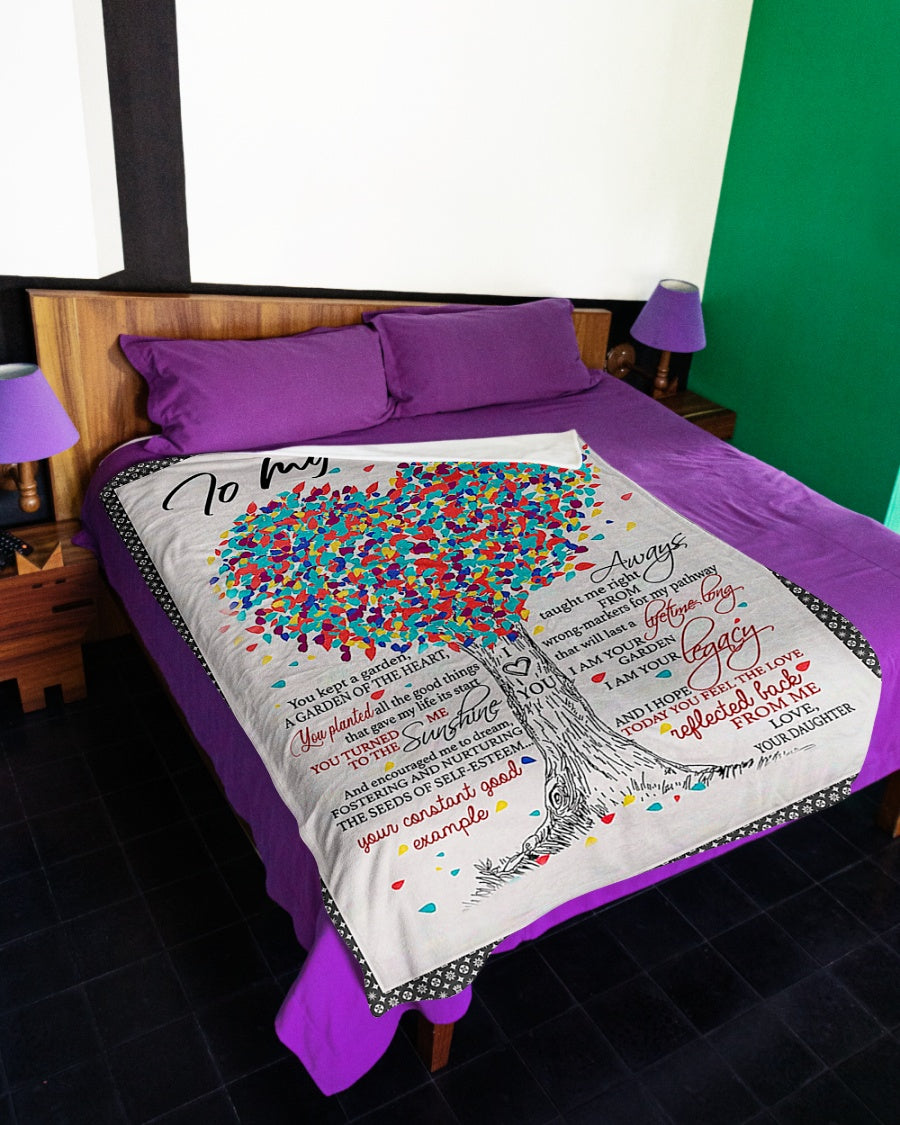 To My
You kept a garden,
A GARDEN OF THE HEART,
You planted all the good things
that gave my life its start
YOU TURNED ME
TO THE Sunshine
And encouraged me to dream,
FOSTERING AND NURTURING
THE SEEDS OF SELF-ESTEEM...
your constant good
example
I
YOU
Aways
taught me right
FROM
wrong-markers for my pathway
that will last a lifetime long
I AM YOUR
GARDEN
I AM YOUR legacy
AND I HOPE
TODAY YOU FEEL THE LOVE
reflected back
FROM ME
LOVE,
YOUR DAUGHTER